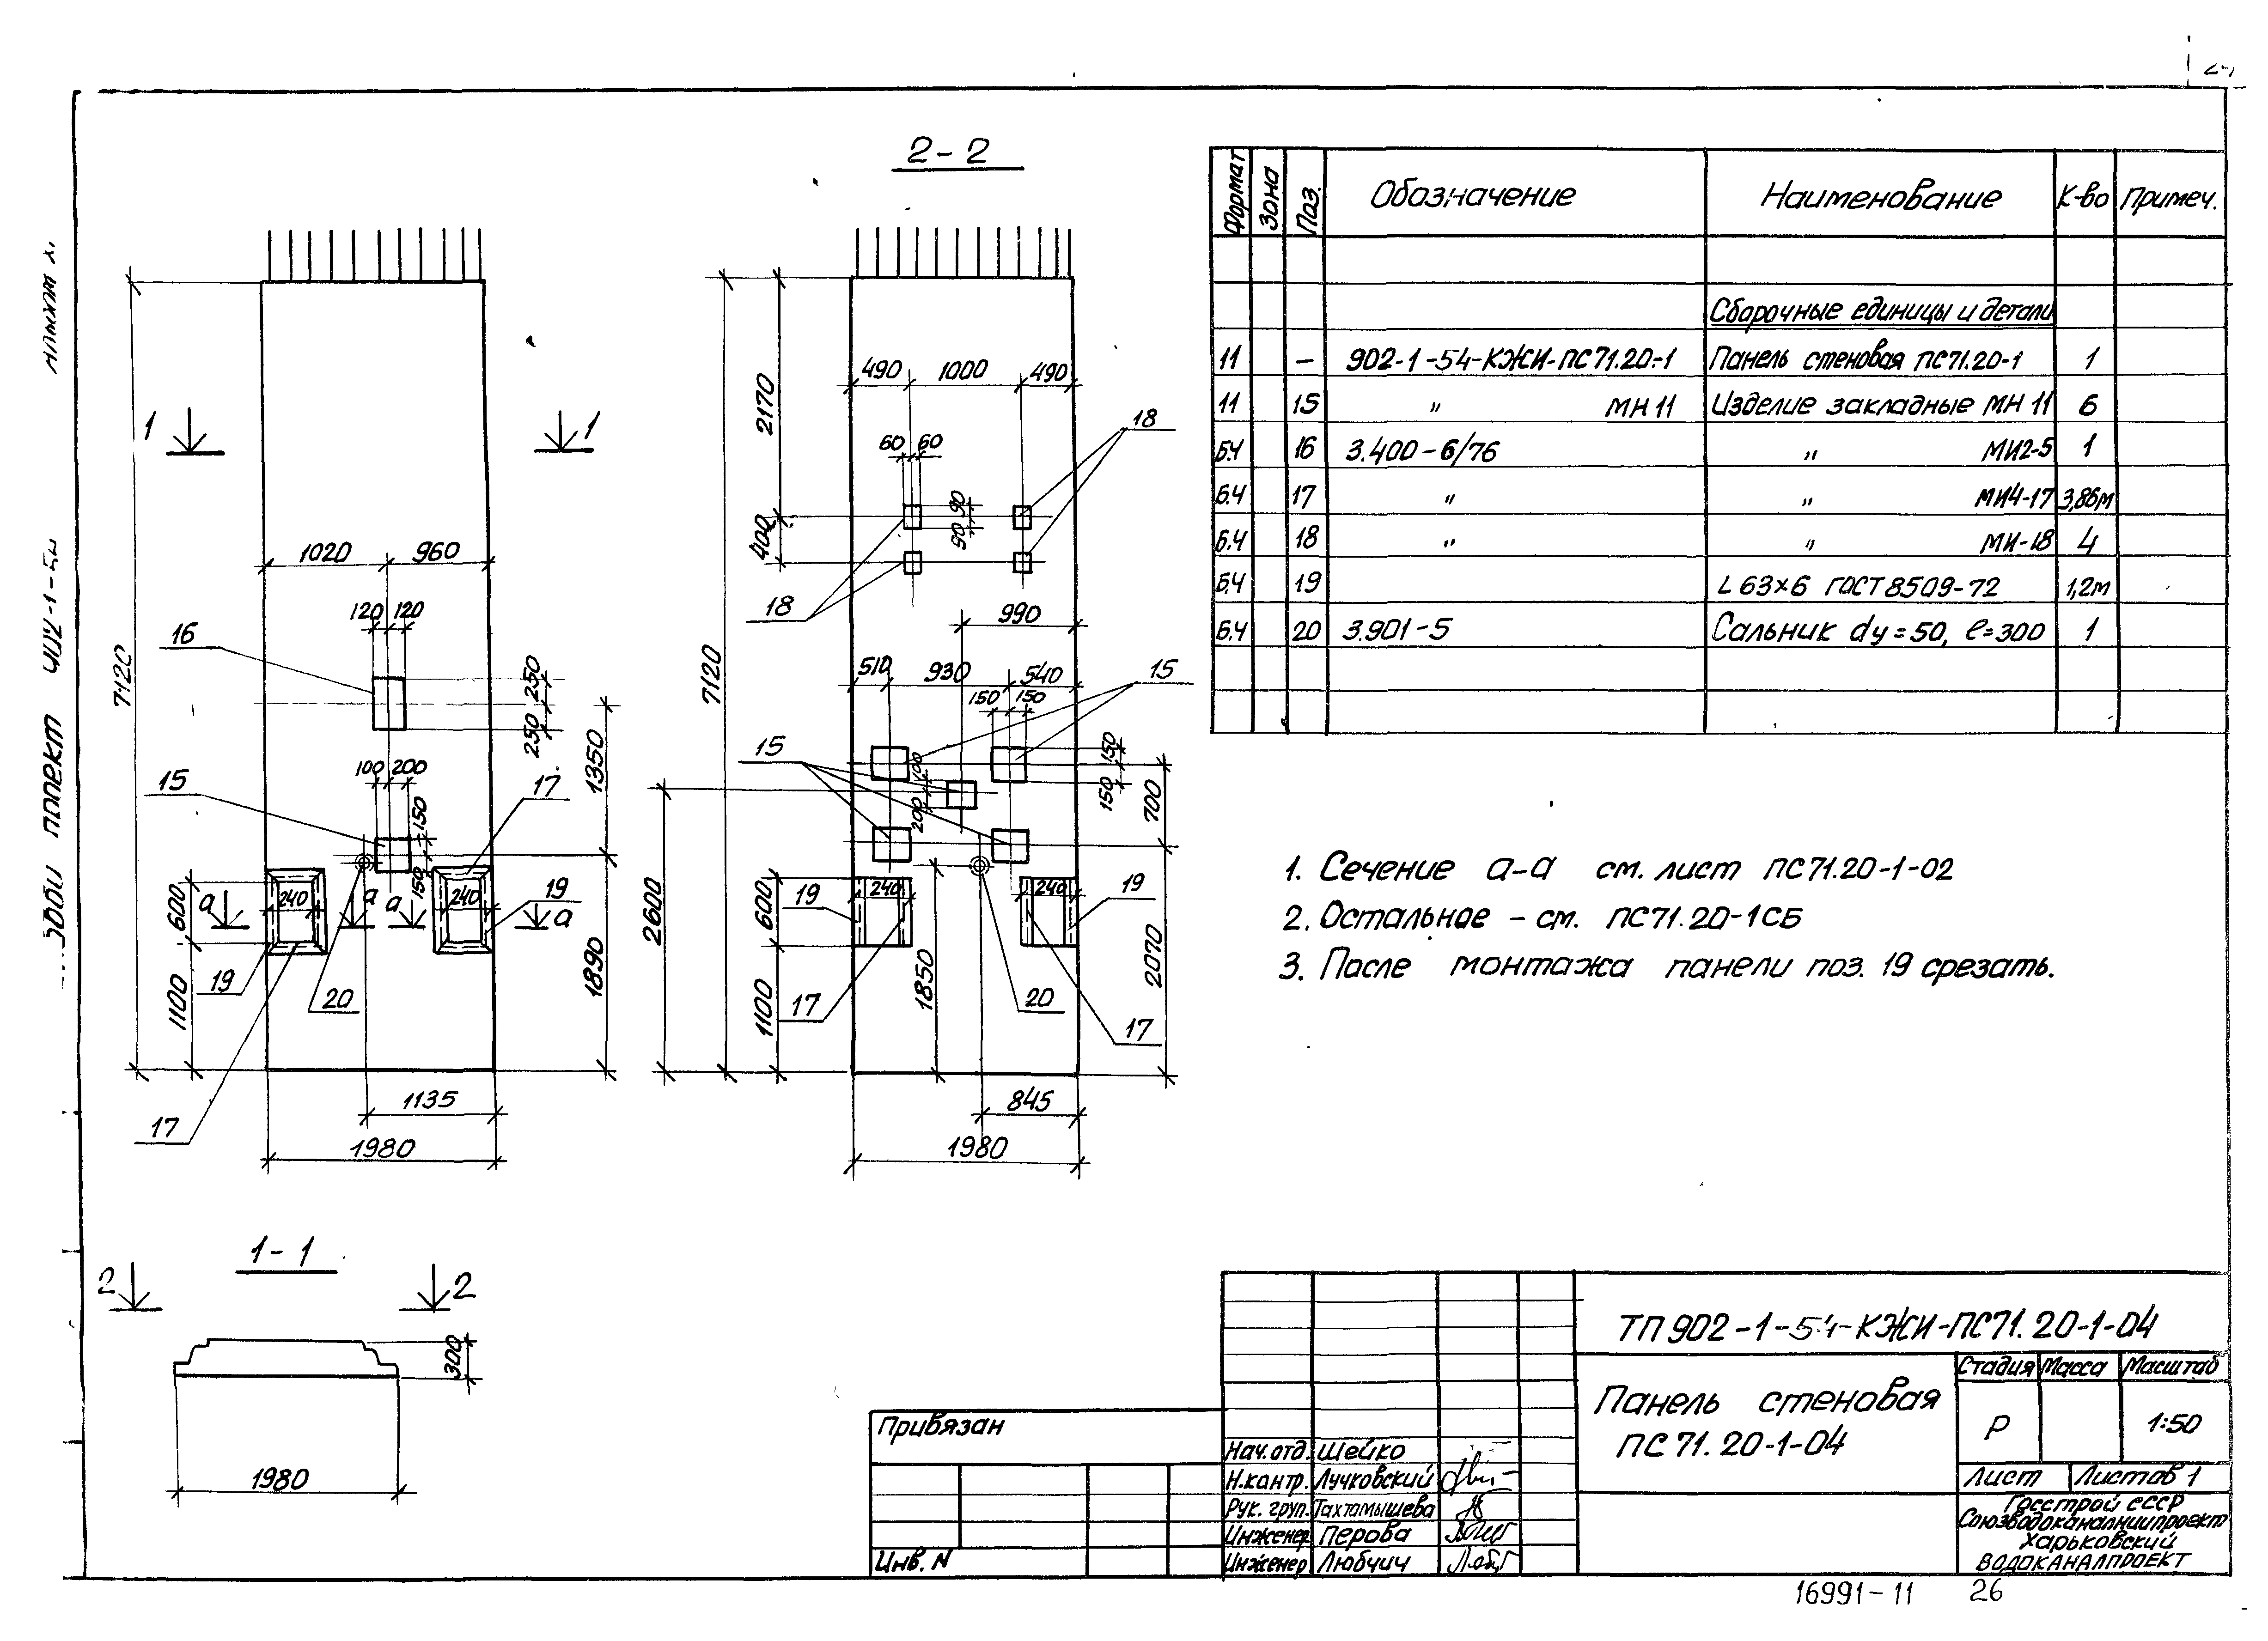 2-2
7120
1
1
1020
960
120
120
16
250
250
1350
100
200
15
150
150
17
600
а
240
а
а
240
19
а
19
20
1100
1890
1135
17
1980
7120
2170
490
1000
490
18
60
60
90
90
400
18
990
510
930
540
15
150
150
15
100
200
150
150
700
2600
600
19
240
240
19
1100
17
1850
20
17
2070
845
1980
1-1
2
2
300
1980
Формат
Зона
Поз.
Обозначение
Наименование
К-во
Примеч.
Сборочные единицы и детали
11 – 902-1-54-КЖИ-ПС71.20-1 Панель стеновая ПС71.20-1 1
11 15 " МН 11 Изделие закладные МН 11 6
Б.Ч 16 3.400-6/76 " МИ2-5 1
Б.Ч 17 " " МИ4-17 3,86м
Б.Ч 18 " " МИ-18 4
Б.Ч 19 L 63×6 ГОСТ 8509-72 1,2м
Б.Ч 20 3.901-5 Сальник dу=50, ℓ=300 1
1. Сечение а-а см. лист ПС71.20-1-02
2. Остальное – см. ПС71.20-1СБ
3. После монтажа панели поз. 19 срезать.
ТП 902-1-54-КЖИ-ПС71.20-1-04
Панель стеновая
ПС 71.20-1-04
Стадия Масса Масштаб
Р 1:50
Лист Листов 1
Госстрой СССР
Союзводоканалниипроект
Харьковский
ВОДОКАНАЛПРОЕКТ
Привязан
Инв. N
Нач. отд. Шейко
Н.контр. Лучковский
Рук. груп. Тахтамышева
Инженер Перова
Инженер Любчич
16991-11 26